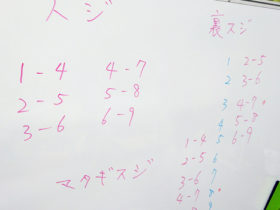 スジ
1-4 4-7
2-5 5-8
3-6 6-9
裏スジ
1 2-5
2 3-6
3 4-7
4 5-8
1-4 5 6-9
2-5 6
3-6 7
4-7 8
マタギスジ